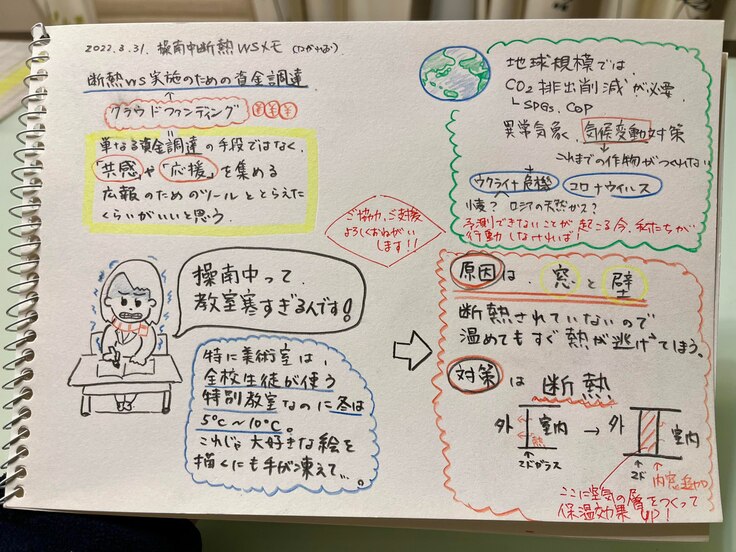 2022.3.31. 操南中断熱WSメモ
断熱WS実施のための資金調達
クラウドファンディング
¥ ¥ ¥
単なる資金調達の手段ではなく、
「共感」や「応援」を集める
広報のためのツールととらえた
くらいがいいと思う。
ご協力、ご支援
よろしくおねがい
します!!
操南中って、
教室寒すぎるんです!
特に美術室は、
全校生徒が使う
特別教室なのに冬は
5℃~10℃。
これじゃ大好きな絵を
描くにも手が凍えて…。
地球規模では、
CO2排出削減が必要
SDGs、COP
異常気象、気候変動対策
これまでの作物がつくれない
ウクライナ危機 コロナウイルス
ロシアの天然ガス?
予測できないことが起こる今、私たちが
行動しなければ!
原因は、窓と壁
断熱されていないので
温めてもすぐ熱が逃げてしまう。
対策は断熱
外 室内 → 外 室内
熱
↑ ↑ ↑
内窓追加
ここに空気の層をつくって
保温効果UP!